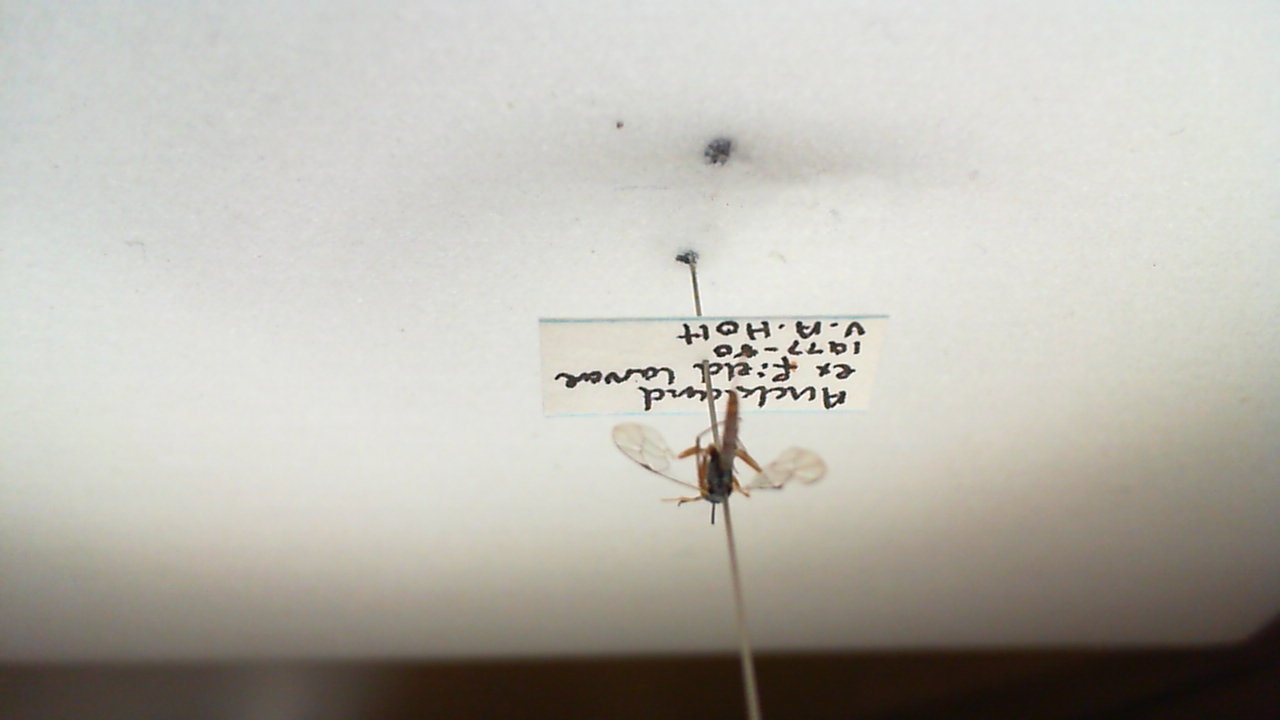 Auckland
ex field larvae
1977-80
V.A. Holt